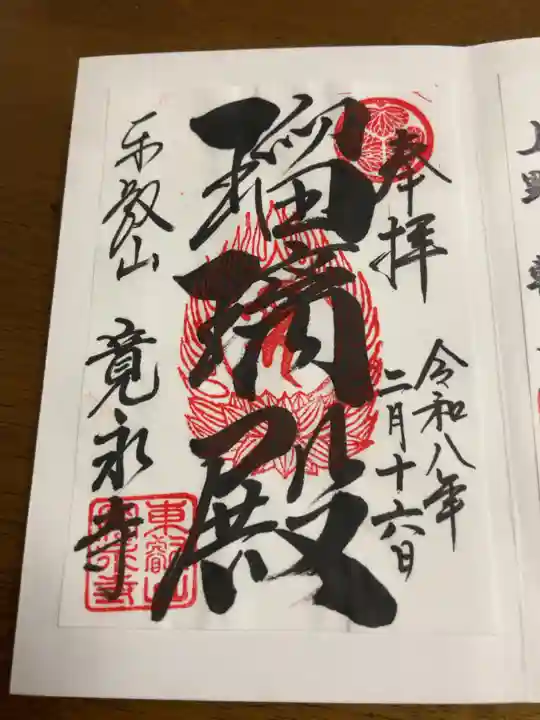 奉拝
令和八年
二月十六日
瑠璃殿
東叡山 寛永寺
東叡山
寛永寺
上野